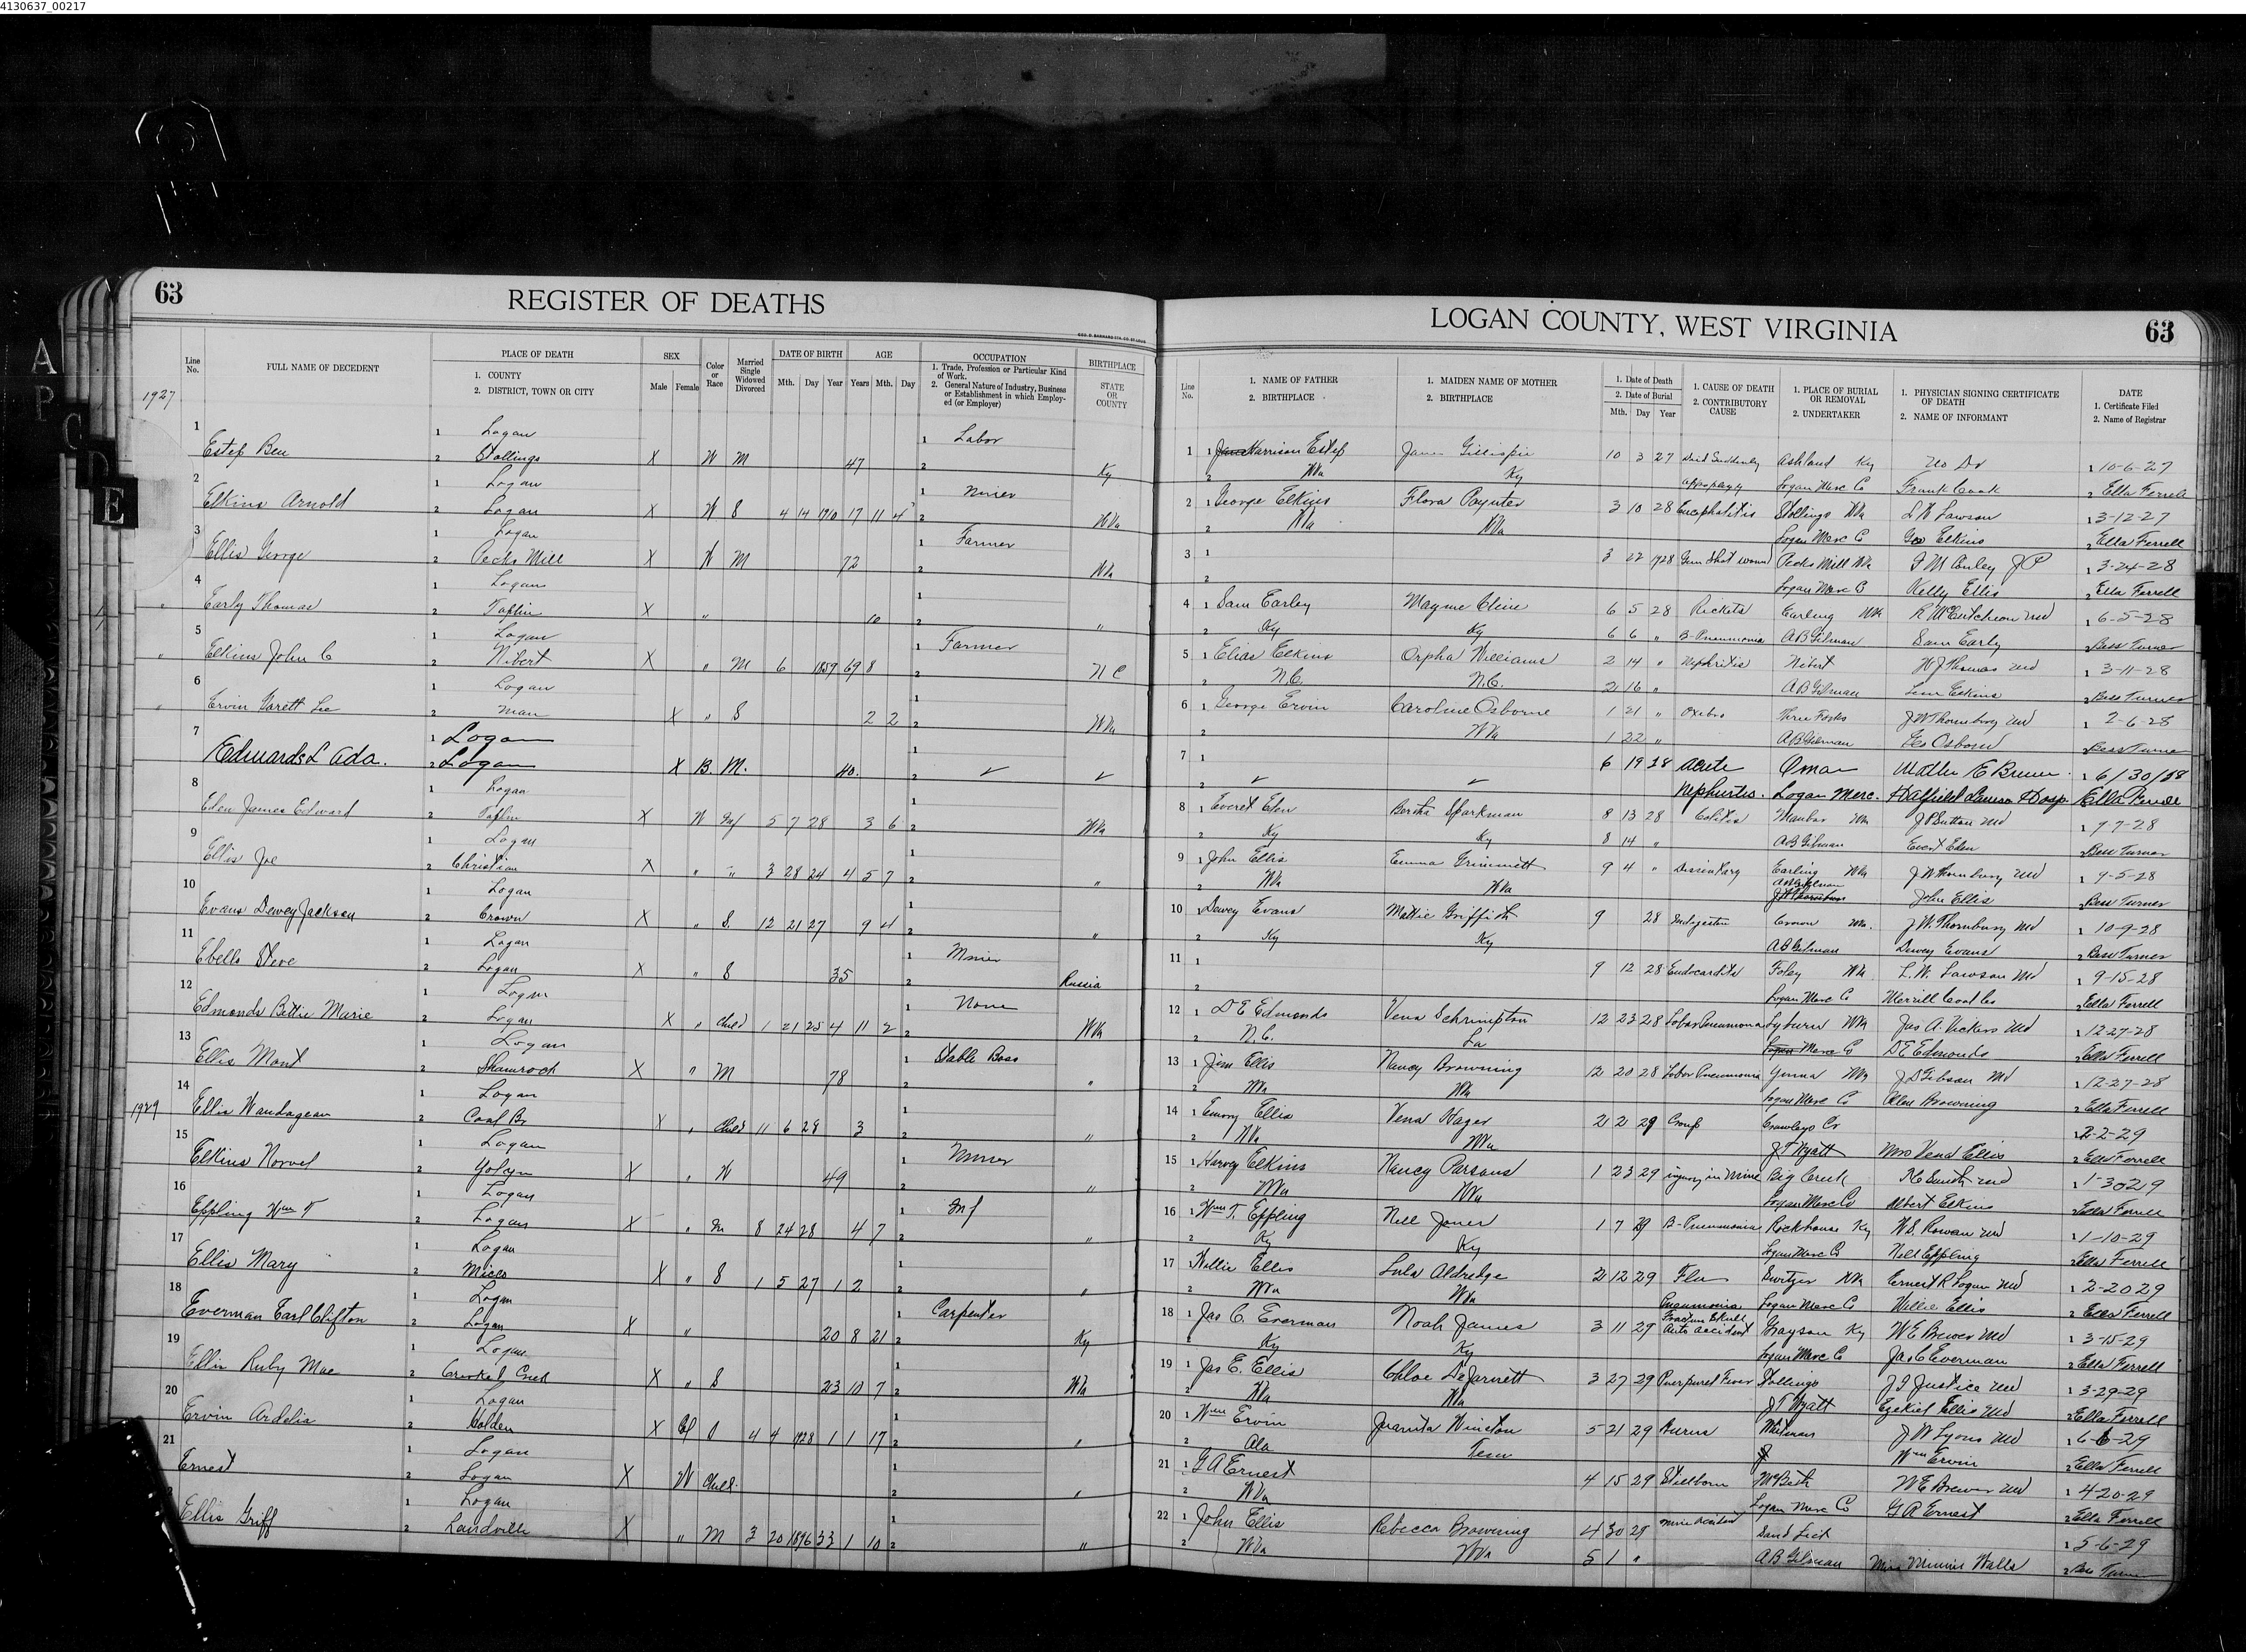 4130637_00217
63
REGISTER OF DEATHS
LOGAN COUNTY, WEST VIRGINIA
63
Line No. FULL NAME OF DECEDENT PLACE OF DEATH 1. COUNTY 2. DISTRICT, TOWN OR CITY SEX Male Female Color or Race Married Single Widowed Divorced DATE OF BIRTH Mth. Day Year AGE Years Mth. Day OCCUPATION 1. Trade, Profession or Particular Kind of Work. 2. General Nature of Industry, Business or Establishment in which Employed (or Employer) BIRTHPLACE STATE OR COUNTY
Line No. 1. NAME OF FATHER 2. BIRTHPLACE 1. MAIDEN NAME OF MOTHER 2. BIRTHPLACE 1. Date of Death 2. Date of Burial Mth. Day Year 1. CAUSE OF DEATH 2. CONTRIBUTORY CAUSE 1. PLACE OF BURIAL OR REMOVAL 2. UNDERTAKER 1. PHYSICIAN SIGNING CERTIFICATE OF DEATH 2. NAME OF INFORMANT DATE 1. Certificate Filed 2. Name of Registrar
1927
1 Estep Ben 1 Logan 2 Stollings X W M 47 1 Labor 2 Ky
2 Elkins Arnold 1 Logan 2 Logan X W S 4 14 1910 17 11 4 1 Miner 2 WVa
3 Ellis George 1 Logan 2 Pecks Mill X W M 72 1 Farmer 2 WVa
4 Early Thomas 1 Logan 2 Taplin X " 10 1 2 "
5 Elkins John C 1 Logan 2 Nibert X " M 6 1859 69 8 1 Farmer 2 N C
6 Ervin Lee 1 Logan 2 Man X " S 2 2 1 2 WVa
7 Edwards L Ada. 1 Logan 2 Logan X B. M. 40. 1 2 ✓ ✓
8 Eden James Edward 1 Logan 2 Taplin X W Inf 5 7 28 3 6 1 2 WVa
9 Ellis Joe 1 Logan 2 Christian X " " 3 28 24 4 5 7 1 2 "
10 Evans Dewey Jackson 1 Logan 2 Crown X " S. 12 21 27 9 4 1 2 "
11 Ebells Steve 1 Logan 2 Logan X " S 35 1 Miner 2 Russia
12 Edmonds Bettie Marie 1 Logan 2 Logan X " Child 1 21 25 4 11 2 1 None 2 WVa
13 Ellis Mont 1 Logan 2 Shamrock X " M 78 1 Stable Boss 2 "
1929
14 Ellis Wandagean 1 Logan 2 Coal Br X " Child 11 6 28 3 1 2 "
15 Elkins Norvel 1 Logan 2 Yolyn X " W 49 1 Miner 2 "
16 Eppling Wm T 1 Logan 2 Logan X " 8 24 28 4 7 1 Inf 2 "
17 Ellis Mary 1 Logan 2 Micco X " S 1 5 27 1 2 1 2 "
18 Everman Earl Clifton 1 Logan 2 Logan X " 20 8 21 1 Carpenter 2 Ky
19 Ellis Ruby Mae 1 Logan 2 Crooked Creek X " S 23 10 7 1 2 WVa
20 Ervin Ardelia 1 Logan 2 Holden X Col S 4 4 1928 1 1 17 1 2 "
21 Ernest 1 Logan 2 Logan X W Child 1 2 "
Ellis Griff 1 Logan 2 Landville X " M 3 20 1896 33 1 10 1 2 "
1 1 Harrison Estep Jane Gillispie 10 3 27 Died Suddenly Ashland Ky No Dr 1 10-6-27
2 WVa Ky Appoplexy Logan Merc Co Frank Cook 2 Ella Ferrell
2 1 George Elkins Flora Poynter 3 10 28 Encephalitis Stollings WVa Lawson 1 3-12-27
2 WVa WVa Logan Merc Co Geo Elkins 2 Ella Ferrell
3 1 3 22 1928 Gun Shot wound Pecks Mill WVa Conley J P 1 3-24-28
2 Logan Merc Co Kelly Ellis 2 Ella Ferrell
4 1 Sam Earley Mayme Cline 6 5 28 Rickets Earling WVa R McCutcheon Md 1 6-5-28
2 Ky Ky 6 6 " B-Pneumonia A B Gilman Sam Early 2 Bess Turner
5 1 Elias Elkins Orpha Williams 2 14 " Nephritis Nibert W J Thomas Md 1 3-11-28
2 N.C. N.C. 2 16 " A B Gilman Elkins 2 Bess Turner
6 1 George Ervin Caroline Osborne 1 21 " Three Forks J W Thornbury Md 1 2-6-28
2 WVa 1 22 " A B Gilman Osborn 2 Bess Turner
7 1 6 19 28 Acute Omar Walter E Brewer. 1 6/30/28
2 ✓ ✓ Nephurtis. Logan Merc. Hatfield Lawson Hosp. Ella Ferrell
8 1 Everet Eden Bertha Sparkman 8 13 28 Colitis WVa J P Sutton Md 1 9-7-28
2 Ky Ky 8 14 " A B Gilman Evert Eden 2 Bess Turner
9 1 John Ellis Emma Grimmett 9 4 " Dissentary Earling WVa J W Thornbury Md 1 9-5-28
2 WVa WVa A B Gilman John Ellis 2 Bess Turner
10 1 Dewey Evans Mattie Griffith 9 28 Indigestion Crown WVa. J. W. Thornbury Md 1 10-9-28
2 Ky Ky A B Gilman Dewey Evans 2 Bess Turner
11 1 9 12 28 Endocarditis Foley WVa L. W. Lawson Md 1 9-15-28
2 Logan Merc Co Merrill Coal Co 2 Ella Ferrell
12 1 D E Edmonds Vena Schrimpton 12 23 28 Lobar Pneumonia Lyburn WVa Jas A. Vickers Md 1 12-27-28
2 N. C. La Logan Merc Co D E Edmonds 2 Ella Ferrell
13 1 Jim Ellis Nancy Browning 12 20 28 Lobar Pneumonia WVa J D Gibson Md 1 12-27-28
2 WVa WVa Logan Merc Co Browning 2 Ella Ferrell
14 1 Emory Ellis Vena Hager 2 2 29 Croup Crawleys Cr 1 2-2-29
2 WVa WVa J T Wyatt Mrs Vena Ellis 2 Ella Ferrell
15 1 Harvey Elkins Nancy Parsons 1 23 29 injury in Mine Big Creek Smith Md 1 1-30 29
2 WVa WVa Logan Merc Co Albert Elkins 2 Ella Ferrell
16 1 Wm T. Eppling Nell Jones 1 7 29 B-Pneumonia Rockhouse Ky W. S. Rowan Md 1 1-10-29
2 Ky Ky Logan Merc Co Nell Eppling 2 Ella Ferrell
17 1 Willie Ellis Lula Aldredge 2 12 29 Flu Switzer WVa Ernest R Logan Md 1 2-20 29
2 WVa WVa Pneumonia Logan Merc Co Willie Ellis 2 Ella Ferrell
18 1 Jas C. Everman Noah James 3 11 29 Fracture Skull Auto accident Grayson Ky W E Brewer Md 1 3-15-29
2 Ky Ky Logan Merc Co Jas C Everman 2 Ella Ferrell
19 1 Jas E. Ellis Chloe DeJarnett 3 27 29 Puerpural Fever Stollings Justice Md 1 3-29-29
2 WVa WVa J T Wyatt Ezekiel Ellis Md 2 Ella Ferrell
20 1 Wm Ervin Juanita Winston 5 21 29 Burns Whitman J W Lyons Md 1 6-6-29
2 Ala Tenn Wm Ervin 2 Ella Ferrell
21 1 G A Ernest 4 15 29 Stillborn McBeth W E Brewer Md 1 4-20-29
2 WVa Logan Merc Co G A Ernest 2 Ella Ferrell
22 1 John Ellis Rebecca Browning 4 30 29 Mine Accident Sand Lick 1 5-6-29
2 WVa WVa 5 1 " A B Gilman Minnie Walls 2 Bess Turner